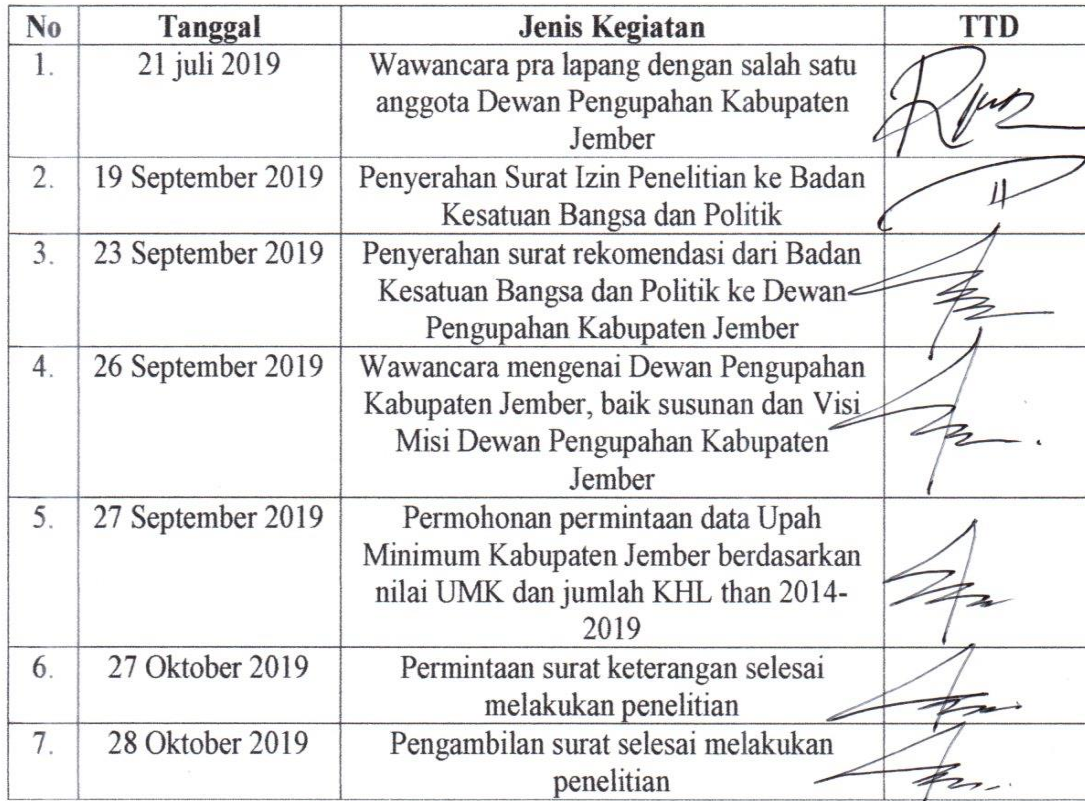 No Tanggal Jenis Kegiatan TTD
1. 21 juli 2019 Wawancara pra lapang dengan salah satu
anggota Dewan Pengupahan Kabupaten
Jember
2. 19 September 2019 Penyerahan Surat Izin Penelitian ke Badan
Kesatuan Bangsa dan Politik
3. 23 September 2019 Penyerahan surat rekomendasi dari Badan
Kesatuan Bangsa dan Politik ke Dewan
Pengupahan Kabupaten Jember
4. 26 September 2019 Wawancara mengenai Dewan Pengupahan
Kabupaten Jember, baik susunan dan Visi
Misi Dewan Pengupahan Kabupaten
Jember
5. 27 September 2019 Permohonan permintaan data Upah
Minimum Kabupaten Jember berdasarkan
nilai UMK dan jumlah KHL than 2014-
2019
6. 27 Oktober 2019 Permintaan surat keterangan selesai
melakukan penelitian
7. 28 Oktober 2019 Pengambilan surat selesai melakukan
penelitian